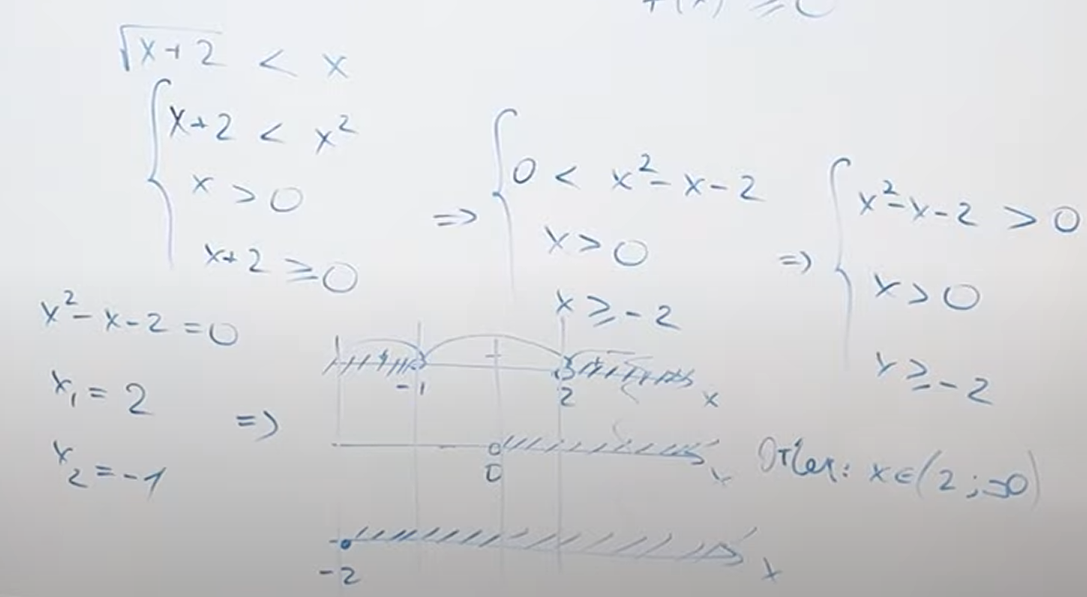 f(x) ≥ 0
√(x+2) < x
{ x+2 < x²
x > 0
x+2 ≥ 0
=> { 0 < x²-x-2
x > 0
x ≥ -2
=> { x²-x-2 > 0
x > 0
x ≥ -2
x²-x-2 = 0
x₁ = 2
x₂ = -1
=>
-1 2 x
0 x
-2 x
Ответ: x∈(2;∞)